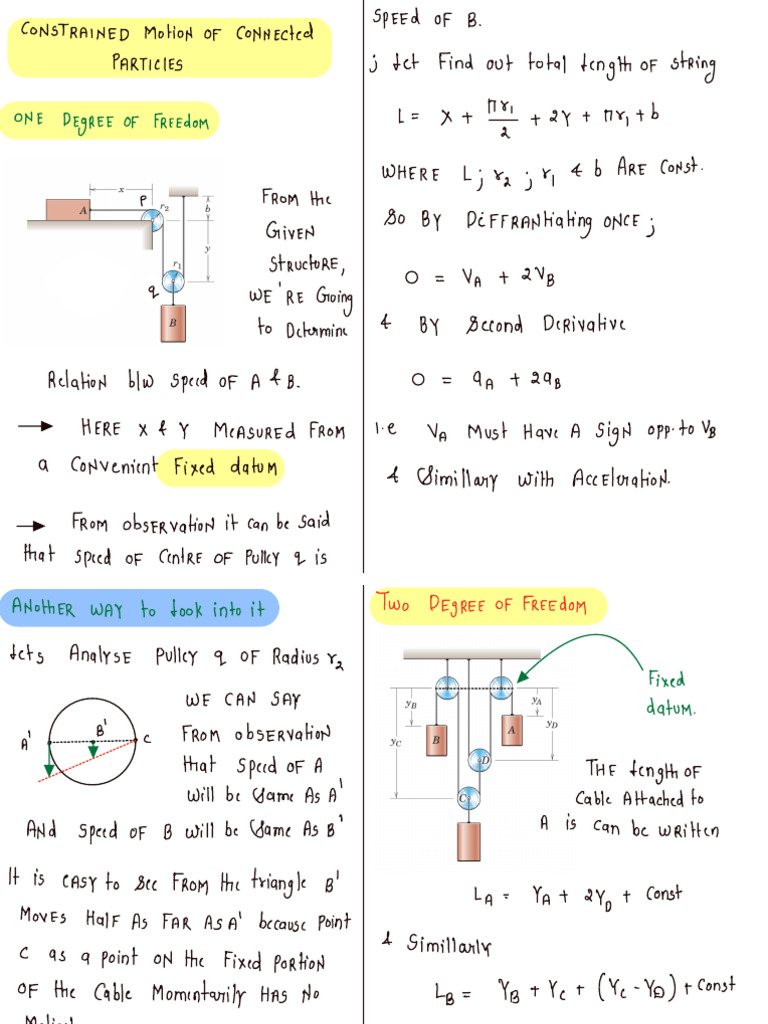 CONSTRAINED MOTION OF CONNECTED
PARTICLES
ONE DEGREE OF FREEDOM
x
P
A
r2
b
y
r1
q
B
FROM the
GIVEN
STRUCTORE,
WE'RE Going
to Determine
Relation b/w speed OF A & B.
→ HERE X & Y MEASURED FROM
a Convenient Fixed datum
→ FROM observation it can be said
that speed of centre of Pulley q is
SPEED OF B.
; Let Find out total length of string
L = X + πr1/2 + 2Y + πr1 + b
WHERE L ; r2 ; r1 & b ARE Const.
So BY DiFFRANtiating ONCE ;
0 = VA + 2VB
& BY Second Derivative
0 = aA + 2aB
i.e VA Must Have A Sign opp. to VB
& Simillary with Acceleration.
ANOTHER WAY to Look into it
Lets Analyse Pulley q OF Radius r2
A'
B'
C
WE CAN SAY
FROM observation
that Speed of A
will be Same As A'
And Speed of B will be Same As B'
It is easy to see From the triangle B'
Moves Half As Far As A' because Point
C as a point on the Fixed Portion
of the Cable Momentarily Has No
Motion
Two Degree of Freedom
Fixed
datum.
yB
yA
yD
yC
B
A
D
C
THE Length of
Cable Attached to
A is can be written
LA = YA + 2YD + Const
& Simillarly
LB = YB + YC + (YC - YD) + Const